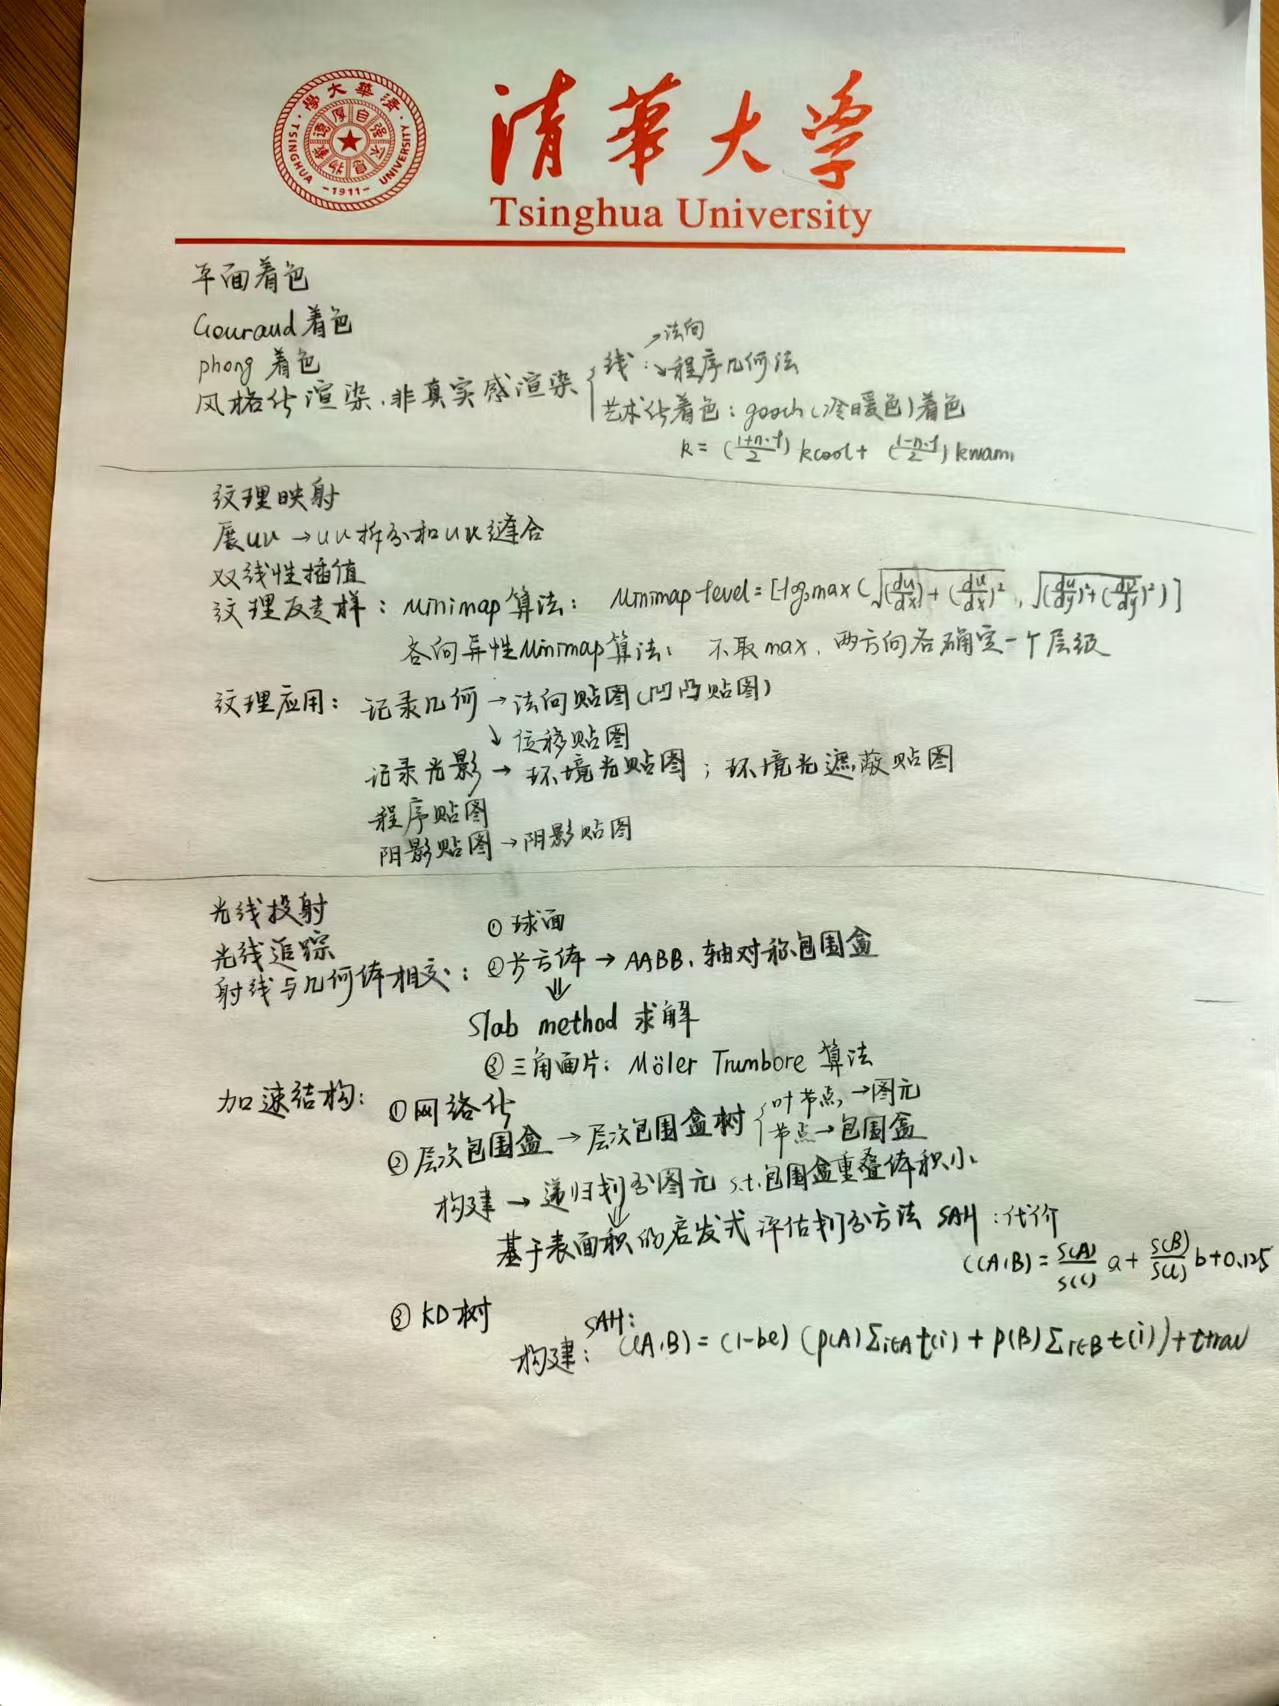 清華大学
Tsinghua University
TSINGHUA UNIVERSITY
-1911-
平面着色
Gouraud着色
phong 着色
风格化渲染.非真实感渲染
线: →法向
↘程序几何法
艺术化着色: gooch(冷暖色)着色
k = (1+n·l/2) kcool + (1-n·l/2) kwarm
纹理映射
展uv →uv拆分和uv缝合
双线性插值
纹理反走样: Minimap算法: Minimap level = [log₂max(√(du/dx)+(du/dx)², √(du/dy)²+(du/dy)²)]
各向异性Minimap算法: 不取max, 两方向各确定一个层级
纹理应用: 记录几何→法向贴图(凹凸贴图)
↘位移贴图
记录光影→环境光贴图; 环境光遮蔽贴图
程序贴图
阴影贴图→阴影贴图
光线投射
光线追踪
射线与几何体相交: ①球面
②长方体→AABB.轴对称包围盒
⇓
Slab method 求解
③三角面片: Möler Trumbore 算法
加速结构: ①网络化
②层次包围盒→层次包围盒树 叶节点→图元
节点→包围盒
构建→递归划分图元 s.t.包围盒重叠体积小
⇓
基于表面积的启发式评估划分方法 SAH:代价
C(A,B) = S(A)/S(C) a + S(B)/S(C) b+0.125
③KD树
构建: SAH: C(A,B) = (1-be)(p(A)Σi∈A t(i) + p(B)Σi∈B t(i))+ttrav